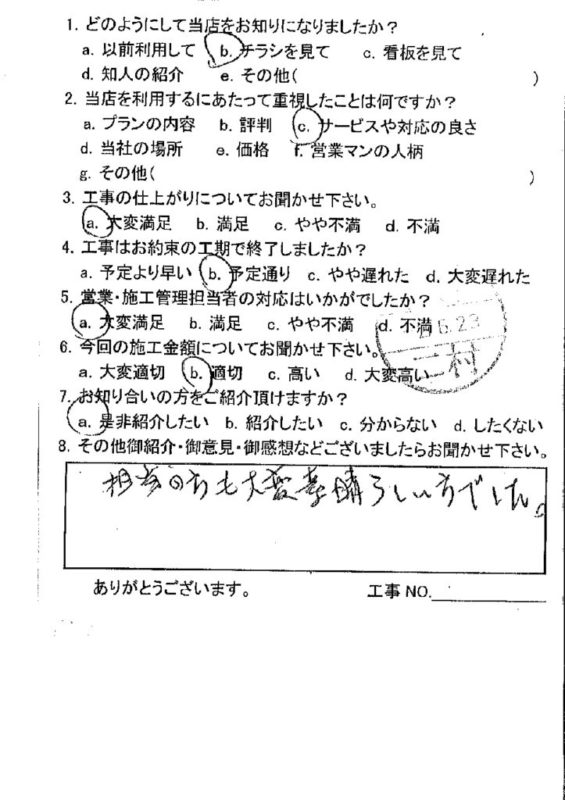 1. どのようにして当店をお知りになりましたか？
a. 以前利用して b. チラシを見て c. 看板を見て
d. 知人の紹介 e. その他( )
2. 当店を利用するにあたって重視したことは何ですか？
a. プランの内容 b. 評判 c. サービスや対応の良さ
d. 当社の場所 e. 価格 f. 営業マンの人柄
g. その他( )
3. 工事の仕上がりについてお聞かせ下さい。
a. 大変満足 b. 満足 c. やや不満 d. 不満
4. 工事はお約束の工期で終了しましたか？
a. 予定より早い b. 予定通り c. やや遅れた d. 大変遅れた
5. 営業・施工管理担当者の対応はいかがでしたか？
a. 大変満足 b. 満足 c. やや不満 d. 不満
6.23
6. 今回の施工金額についてお聞かせ下さい。
二村
a. 大変適切 b. 適切 c. 高い d. 大変高い
7. お知り合いの方をご紹介頂けますか？
a. 是非紹介したい b. 紹介したい c. 分からない d. したくない
8. その他御紹介・御意見・御感想などございましたらお聞かせ下さい。
担当の方も大変素晴らしい方でした。
ありがとうございます。 工事 NO.